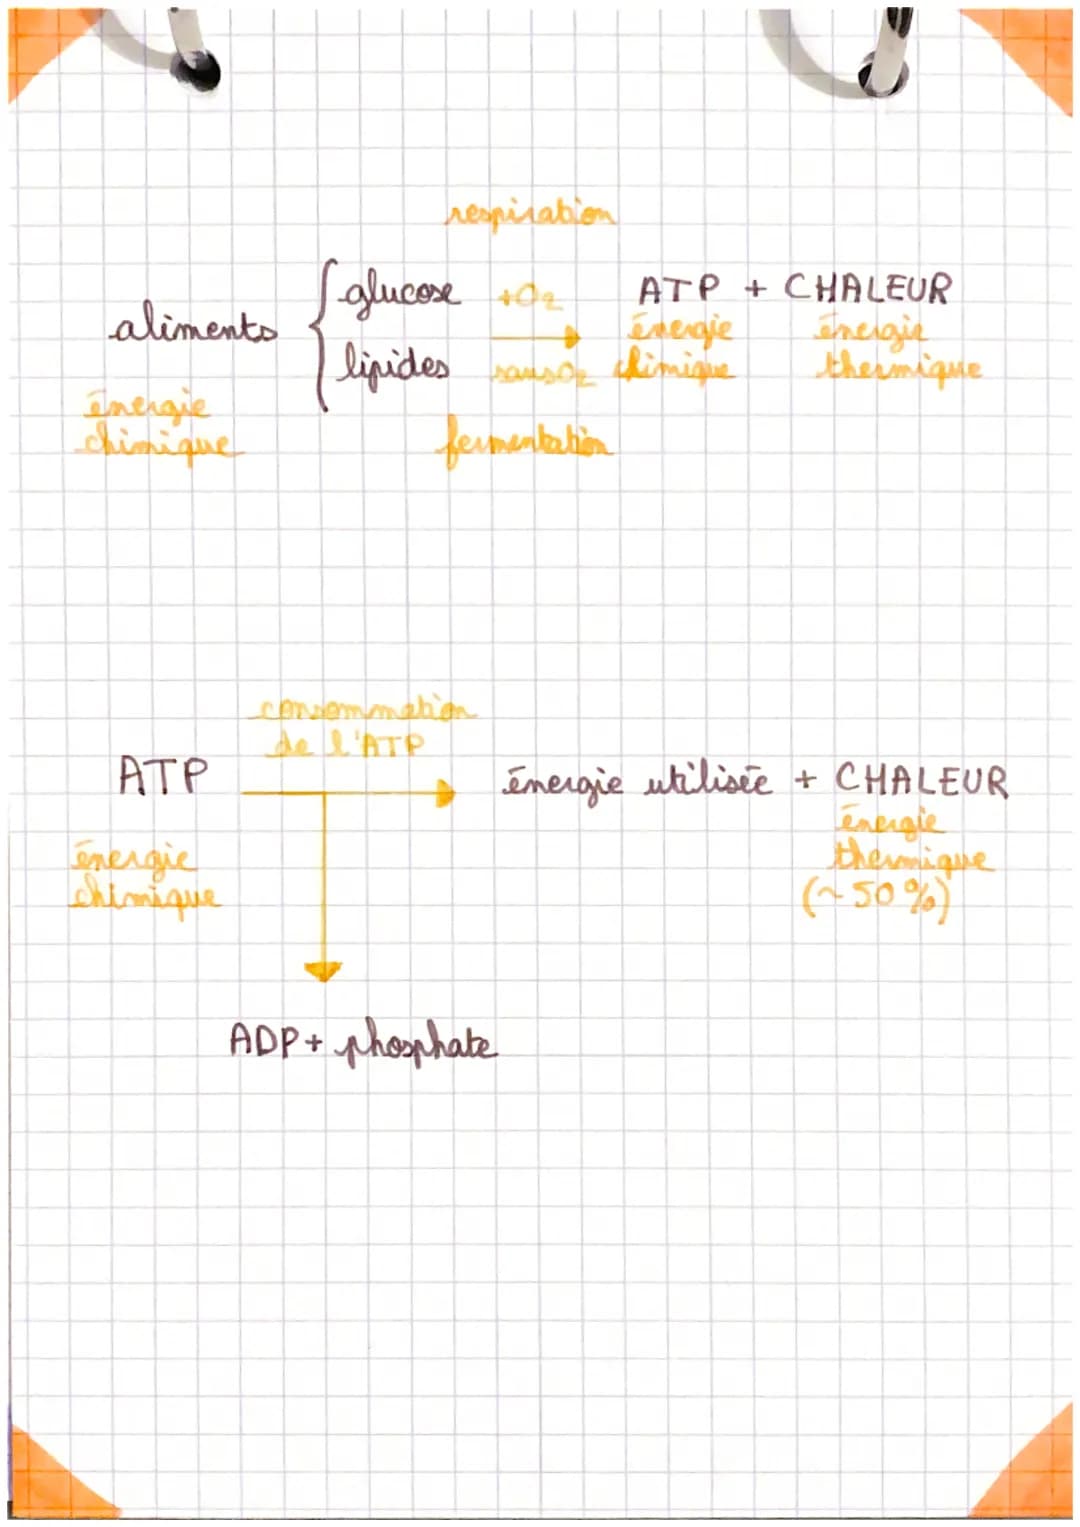 respiration
aliments { glucose +O₂ → ATP + CHALEUR
lipides sans O₂
énergie chimique
énergie thermique
énergie
chimique
fermentation
consommation
de l'ATP
ATP → énergie utilisée + CHALEUR
énergie
thermique
(~50%)
énergie
chimique
ADP + phosphate